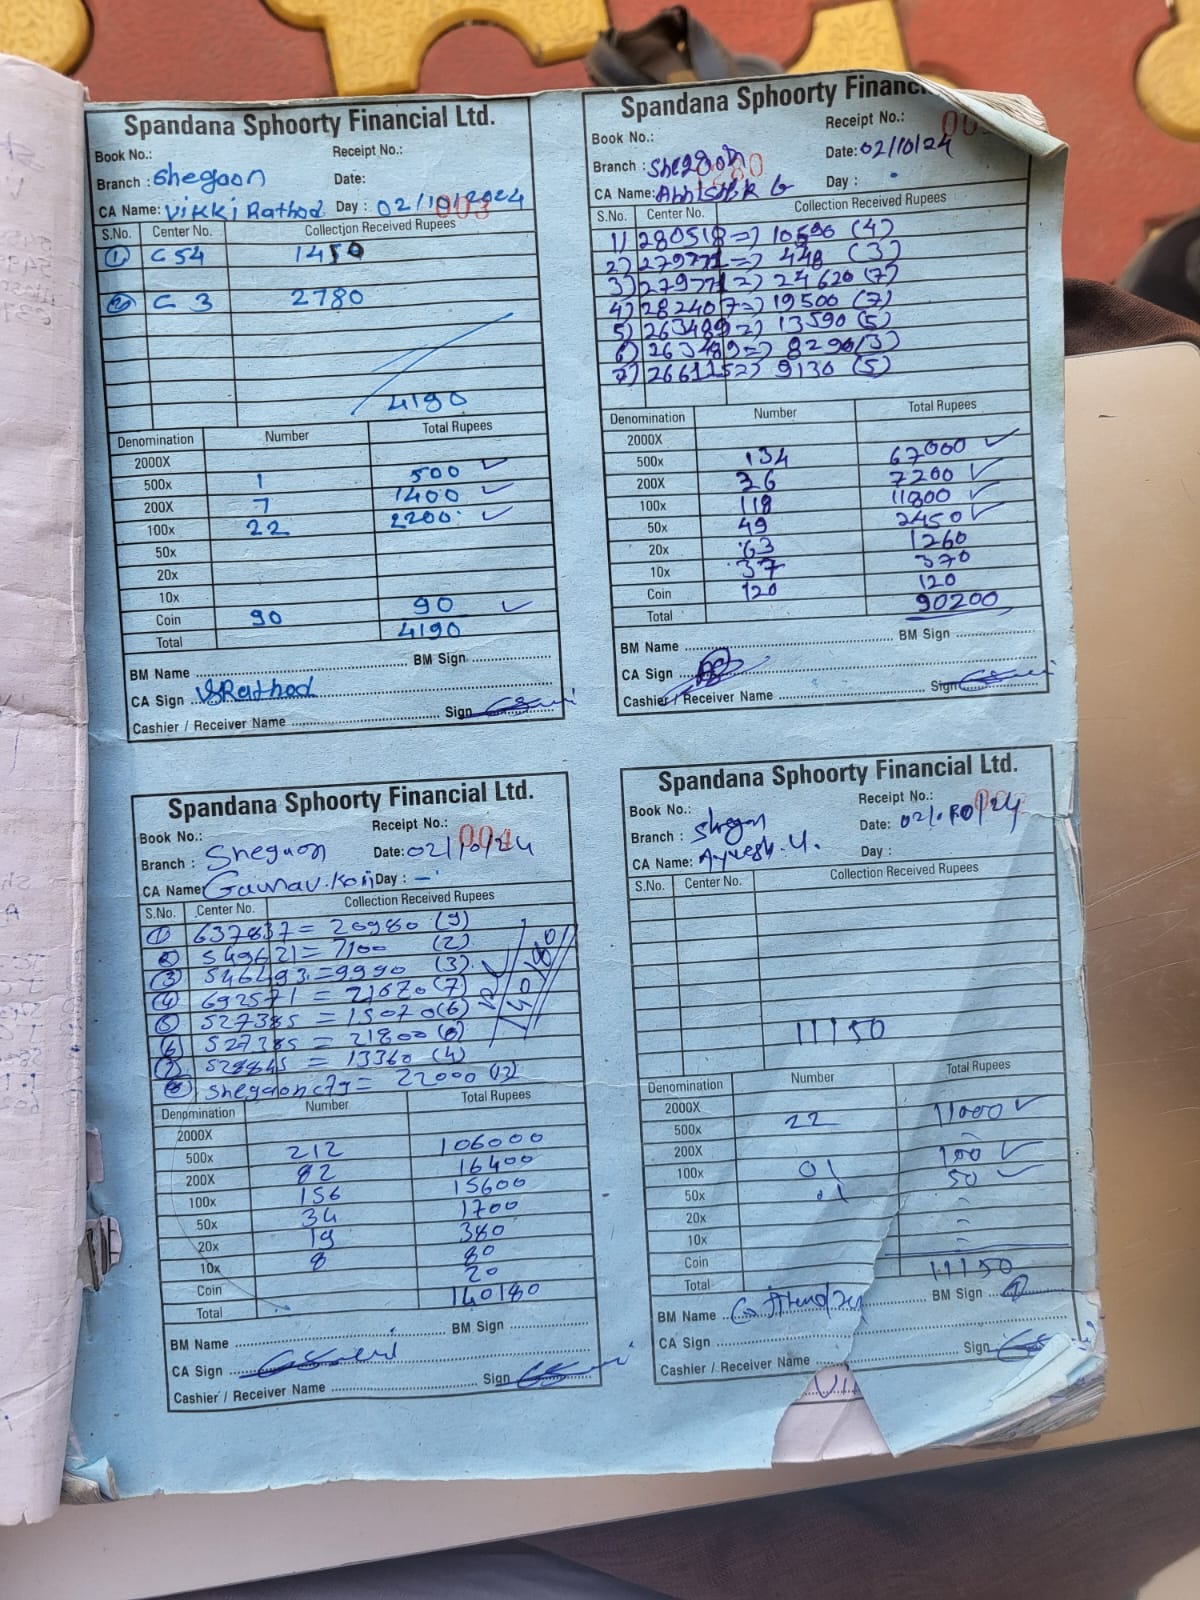 Spandana Sphoorty Financial Ltd.
Book No.: Receipt No.:
Branch : Shegaon Date:
CA Name: Vikki Rathod Day : 02/10/2024
003
S.No. Center No. Collection Received Rupees
① C 54 1450
② C 3 2780
4190
Denomination Number Total Rupees
2000X
500x 1 500 ✓
200X 7 1400 ✓
100x 22 2200 ✓
50x
20x
10x
Coin 90 90 ✓
Total 4190
BM Name BM Sign
CA Sign VSRathod
Cashier / Receiver Name Sign
Spandana Sphoorty Financ
Book No.: Receipt No.:
Branch : Shegaon Date: 02/10/24
CA Name: Abhishek G Day :
S.No. Center No. Collection Received Rupees
1) 280518 => 10590 (4)
2) 279771 => 448 (3)
3) 279771 => 24620 (7)
4) 282407 => 19500 (7)
5) 263489 => 13590 (5)
6) 263489 => 8290 (3)
7) 266115 => 9130 (5)
Denomination Number Total Rupees
2000X
500x 134 67000 ✓
200X 36 7200 ✓
100x 118 11800 ✓
50x 49 2450 ✓
20x 63 1260
10x 37 370
Coin 120 120
Total 90200
BM Name BM Sign
CA Sign
Cashier / Receiver Name Sign
Spandana Sphoorty Financial Ltd.
Book No.: Receipt No.:
004
Branch : Shegaon Date: 02/10/24
CA Name: Gaurav.Koli Day : –
S.No. Center No. Collection Received Rupees
① 637837 = 20980 (9)
② 549621 = 7100 (2)
③ 546493 = 9990 (3)
④ 692571 = 21670 (7)
⑤ 527385 = 15070 (6)
⑥ 527385 = 21800 (6)
⑦ 528845 = 13360 (4)
⑧ Shegaon = 22000
140180
Denomination Number Total Rupees
2000X
500x 212 106000
200X 82 16400
100x 156 15600
50x 34 1700
20x 19 380
10x 8 80
Coin 20
Total 140180
BM Name BM Sign
CA Sign
Cashier / Receiver Name Sign
Spandana Sphoorty Financial Ltd.
Book No.: Receipt No.:
Branch : Shegon Date: 02/10/24
CA Name: Ayyesh.U. Day :
S.No. Center No. Collection Received Rupees
11150
Denomination Number Total Rupees
2000X
500x 22 11000 ✓
200X –
100x 01 100 ✓
50x 01 50 ✓
20x –
10x –
Coin –
Total 11150
BM Name BM Sign
CA Sign
Cashier / Receiver Name Sign